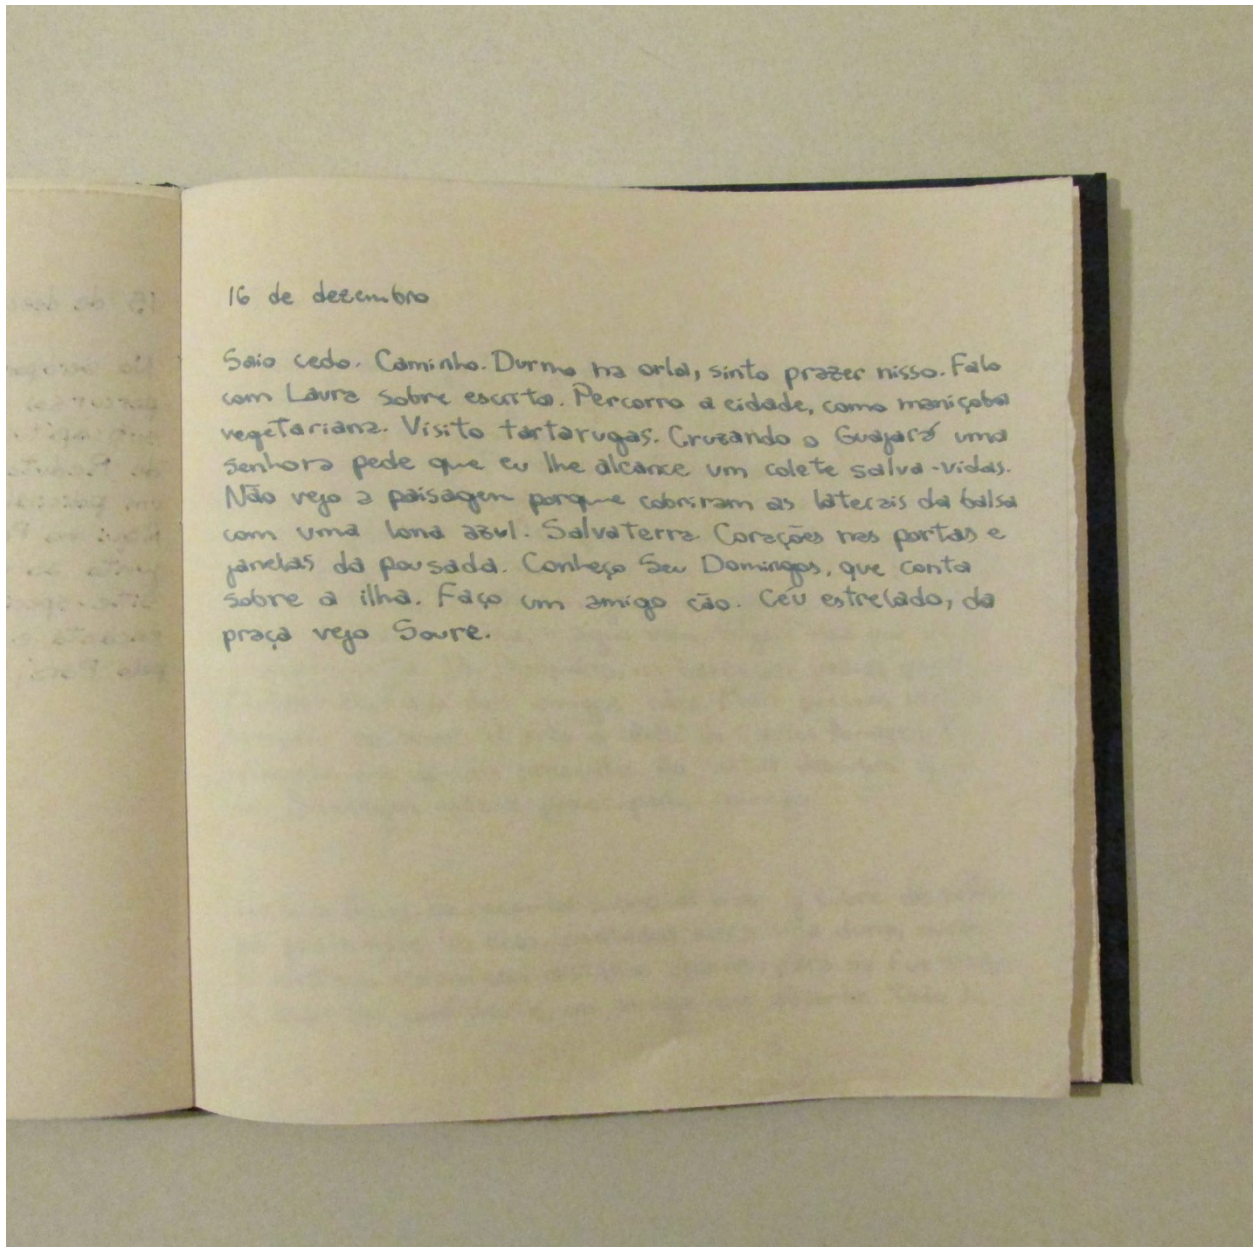 16 de dezembro
Saio cedo. Caminho. Durmo na orla, sinto prazer nisso. Falo
com Laura sobre escrita. Percorro a cidade, como maniçoba
vegetariana. Visito tartarugas. Cruzando o Guajará uma
senhora pede que eu lhe alcance um colete salva-vidas.
Não vejo a paisagem porque cobriram as laterais da balsa
com uma lona azul. Salvaterra. Corações nas portas e
janelas da pousada. Conheço Seu Domingos, que conta
sobre a ilha. Faço um amigo cão. Céu estrelado, da
praça vejo Soure.